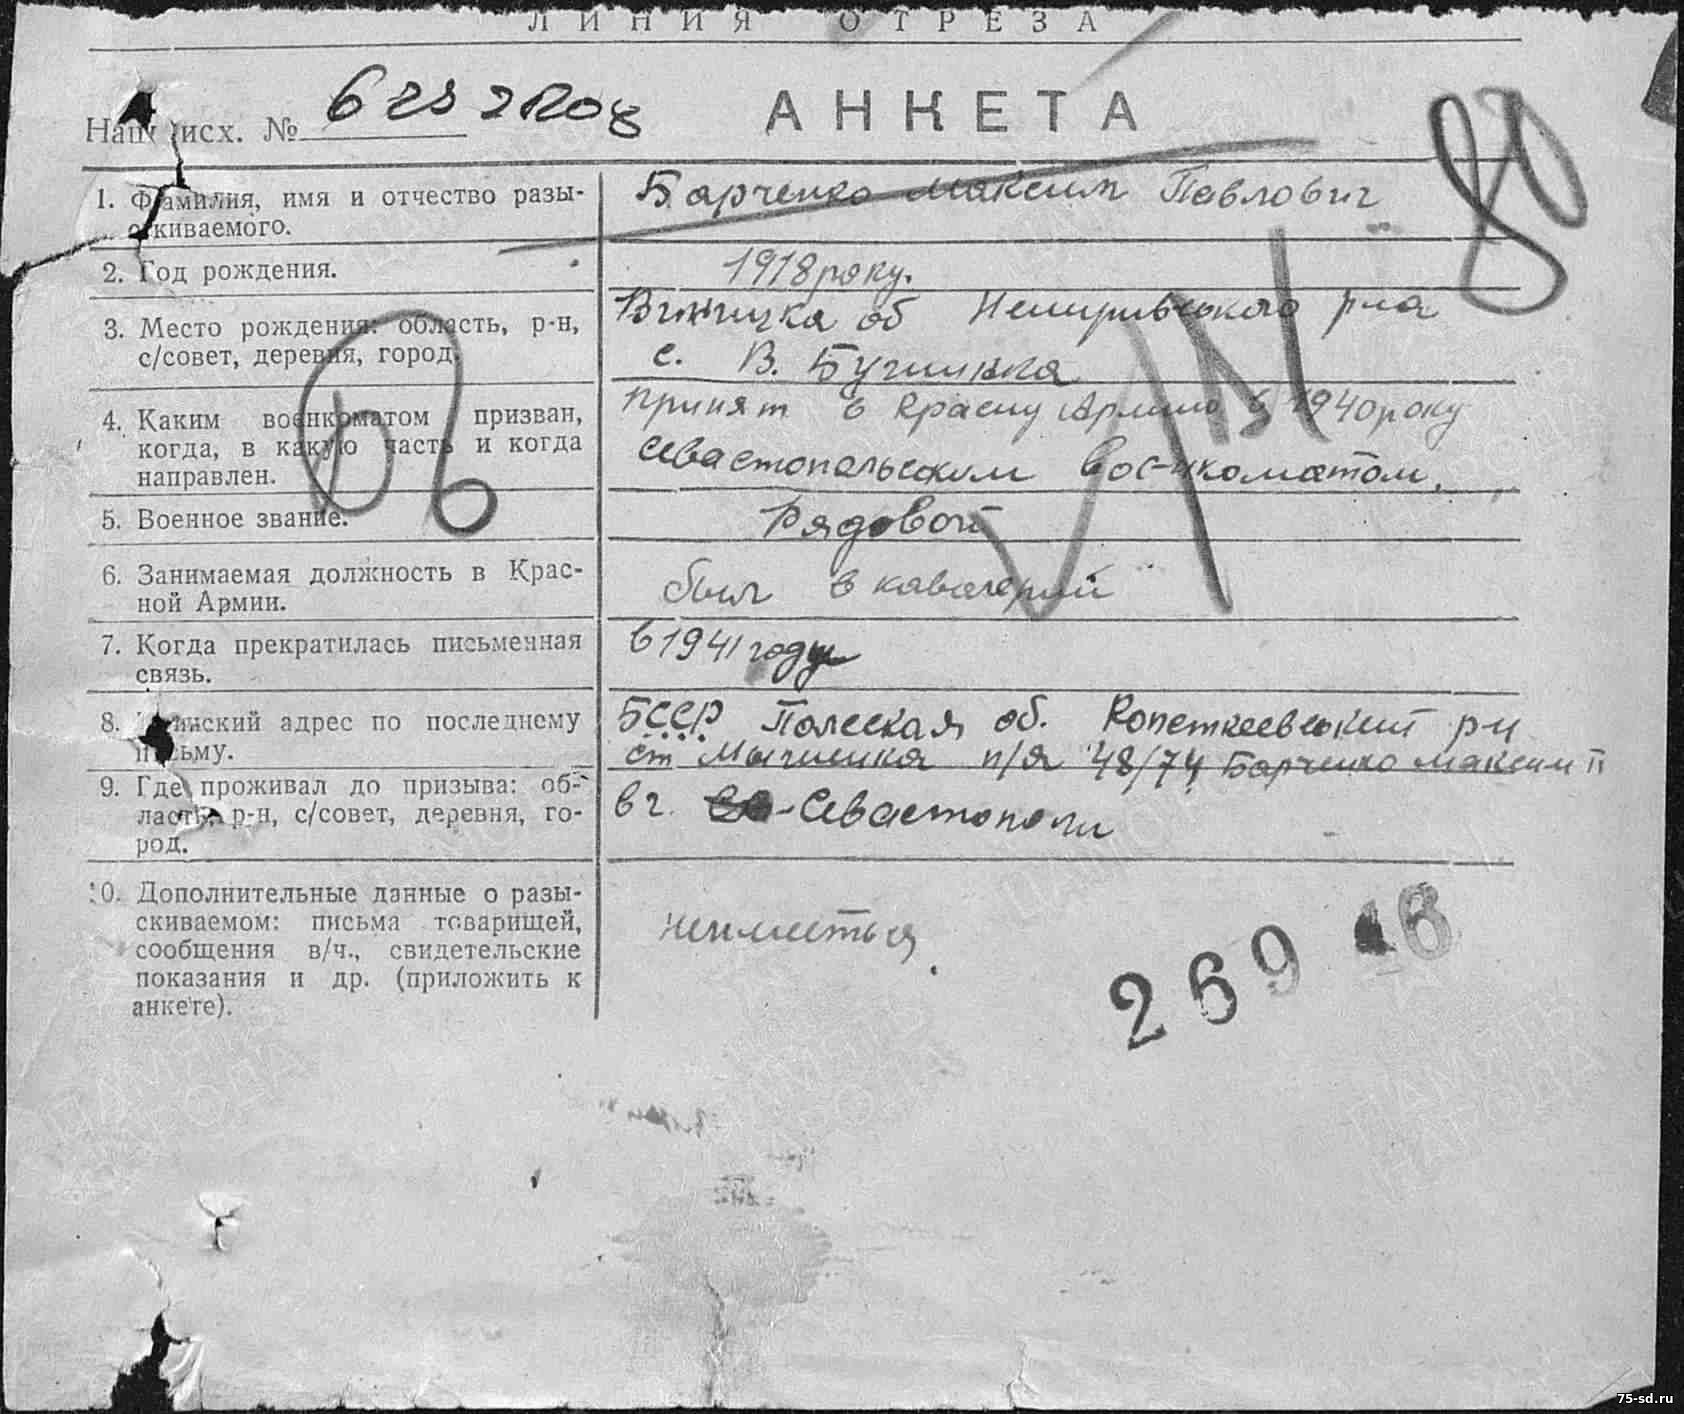 ЛИНИЯ ОТРЕЗА
Наш исх. № АНКЕТА
80
1. Фамилия, имя и отчество разы-
скиваемого.
Барченко Максим Павлович
2. Год рождения.
1918 року.
3. Место рождения: область, р-н,
с/совет, деревня, город.
Вінницка об Немирівського р-на
с. В. Бушинка
4. Каким военкоматом призван,
когда, в какую часть и когда
направлен.
принят в Красну Армию в 1940 року
Севастопольским военкоматом.
5. Военное звание.
Рядовой
6. Занимаемая должность в Крас-
ной Армии.
был в кавалерии
7. Когда прекратилась письменная
связь.
в 1941 году
8. Воинский адрес по последнему
письму.
БССР Полеская об. Копеткевский р-н
ст Мышенка п/я 48/74 Барченко Максим П
9. Где проживал до призыва: об-
ласть, р-н, с/совет, деревня, го-
род.
в г. Севастополи
10. Дополнительные данные о разы-
скиваемом: письма товарищей,
сообщения в/ч., свидетельские
показания и др. (приложить к
анкете).
неиметься
269 46
75-sd.ru